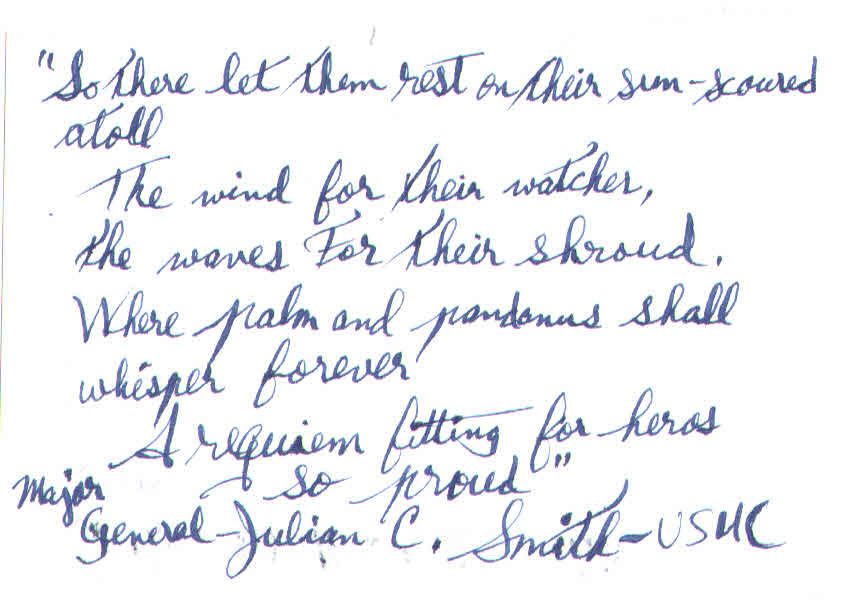 "So there let them rest on their sun-scoured
atoll
The wind for their watcher,
the waves For their shroud.
Where palm and pandanus shall
whisper forever
A requiem fitting for heros
so proud"
Major
General-Julian C. Smith-USMC